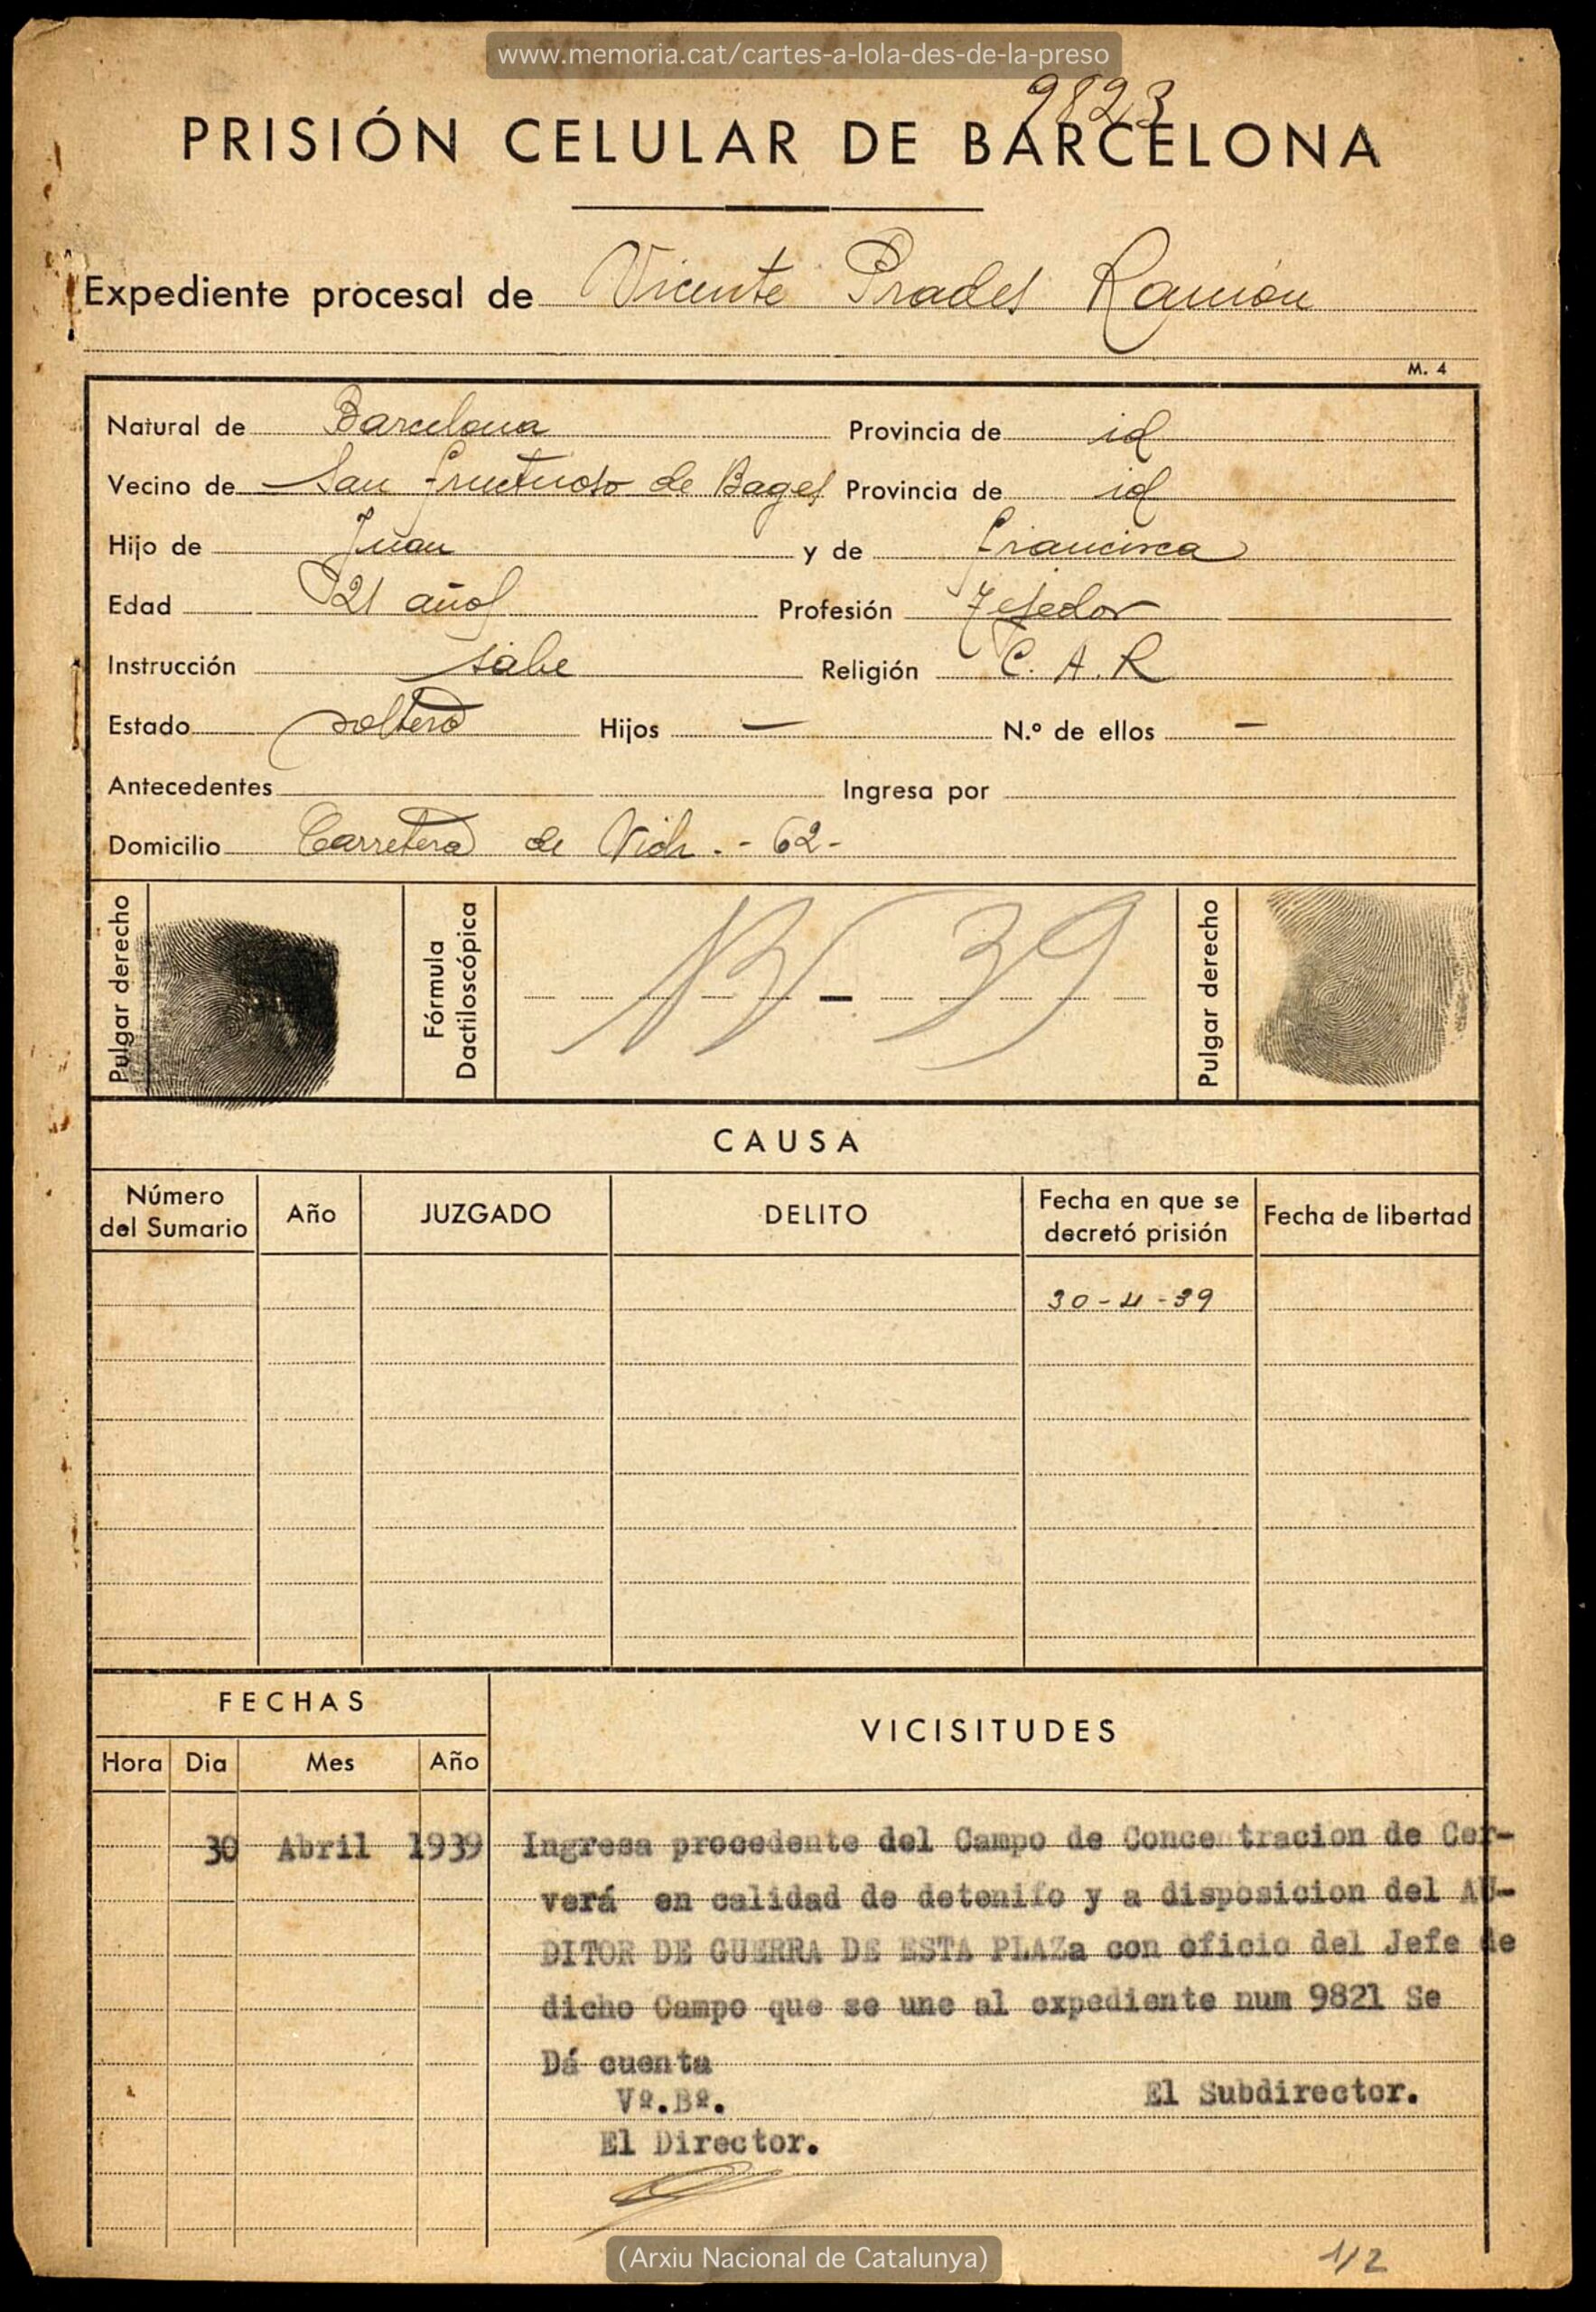 www.memoria.cat/cartes-a-lola-des-de-la-preso
9823
PRISIÓN CELULAR DE BARCELONA
Expediente procesal de Vicente Prades Ramón
M. 4
Natural de Barcelona Provincia de id
Vecino de San Fructuoso de Bages Provincia de id
Hijo de Juan y de Francisca
Edad 21 años Profesión Tejedor
Instrucción sabe Religión C. A. R
Estado soltero Hijos — N.º de ellos —
Antecedentes Ingresa por
Domicilio Carretera de Vich. - 62-
Pulgar derecho Fórmula Dactiloscópica 39 Pulgar derecho
CAUSA
Número del Sumario Año JUZGADO DELITO Fecha en que se decretó prisión Fecha de libertad
30-4-39
FECHAS
VICISITUDES
Hora Dia Mes Año
30 Abril 1939 Ingresa procedente del Campo de Conce tracion de Cer-
verá en calidad de detenifo y a disposicion del AU-
DITOR DE GUERRA DE ESTA PLAZa con oficio del Jefe de
dicho Campo que se une al expediente num 9821 Se
Dá cuenta
Vº.Bº. El Subdirector.
El Director.
(Arxiu Nacional de Catalunya)
1/2